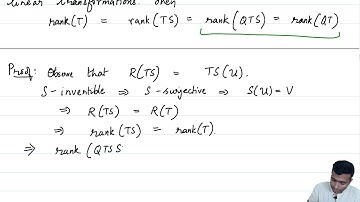 linear transformations. Then
rank(T) = rank(TS) = rank(QTS) = rank(QT)
Proof: Observe that R(TS) = TS(U).
S-invertible ⇒ S-surjective ⇒ S(U) = V
⇒ R(TS) = R(T)
⇒ rank(TS) = rank(T).
⇒ rank(QTS